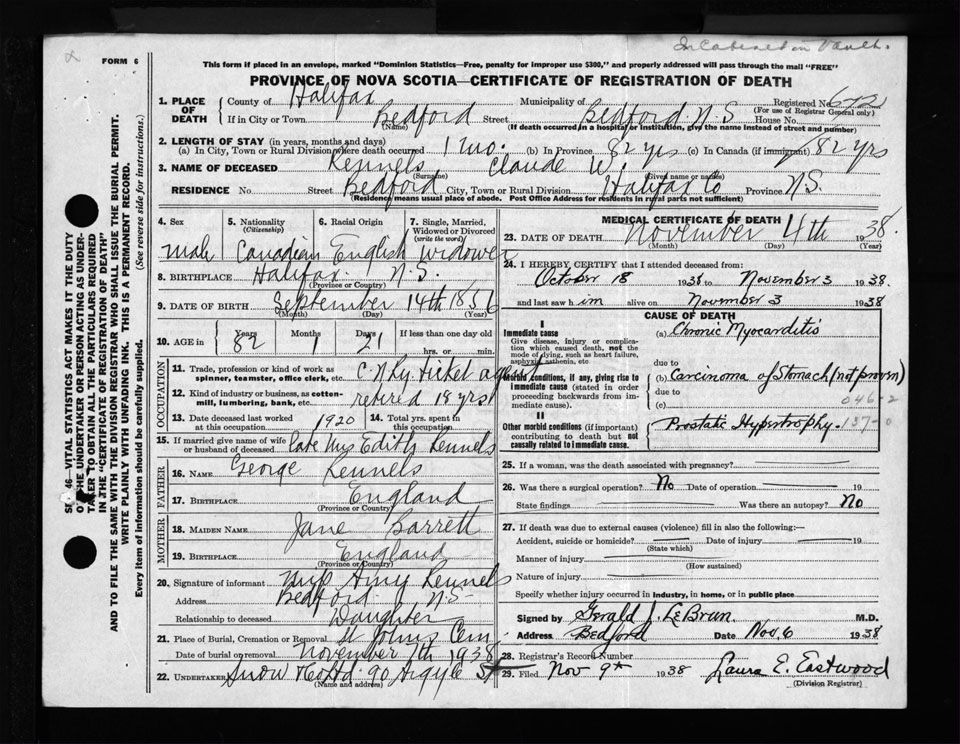 FORM 6
Incatenated in Vault.
This form if placed in an envelope, marked "Dominion Statistics—Free, penalty for improper use $300," and properly addressed will pass through the mail "FREE"
PROVINCE OF NOVA SCOTIA—CERTIFICATE OF REGISTRATION OF DEATH
1. PLACE OF DEATH County of Halifax Municipality of Registered No. 672
(For use of Registrar General only)
If in City or Town Bedford Street Bedford N.S House No.
(Name) (If death occurred in a hospital or institution, give the name instead of street and number)
2. LENGTH OF STAY (in years, months and days)
(a) In City, Town or Rural Division where death occurred 1 mo. (b) In Province 82 yrs (c) In Canada (if immigrant) 82 yrs
3. NAME OF DECEASED Kennels Claude W.
(Surname) (Given name or names)
RESIDENCE No. Street Bedford City, Town or Rural Division Halifax Co Province N.S.
(Residence means usual place of abode. Post Office Address for residents in rural parts not sufficient)
4. Sex male
5. Nationality (Citizenship) Canadian
6. Racial Origin English
7. Single, Married, Widowed or Divorced (write the word) Widower
8. BIRTHPLACE Halifax N.S.
(Province or Country)
9. DATE OF BIRTH September 14th 1856
(Month) (Day) (Year)
10. AGE in Years 82 Months 1 Days 21 If less than one day old hrs. or min.
OCCUPATION
11. Trade, profession or kind of work as spinner, teamster, office clerk, etc. C N Ry. ticket agent
12. Kind of industry or business, as cotton-mill, lumbering, bank, etc. retired 18 yrs
13. Date deceased last worked at this occupation 1920
14. Total yrs. spent in this occupation
15. If married give name of wife or husband of deceased Late Mrs Edith Kennels
FATHER
16. NAME George Kennels
17. BIRTHPLACE England
(Province or Country)
MOTHER
18. MAIDEN NAME Jane Barrett
19. BIRTHPLACE England
(Province or Country)
20. Signature of informant Miss Amy Kennels
Address Bedford N.S
Relationship to deceased Daughter
21. Place of Burial, Cremation or Removal St Johns Cem
Date of burial or removal November 7th 1938
22. UNDERTAKER Snow & Co Ltd 90 Argyle St
(Name and address)
MEDICAL CERTIFICATE OF DEATH
23. DATE OF DEATH November 4th 1938.
(Month) (Day) (Year)
24. I HEREBY CERTIFY that I attended deceased from:
October 18 1938 to November 3 1938
and last saw him alive on November 3 1938
CAUSE OF DEATH
I
Immediate cause
Give disease, injury or complication which caused death, not the mode of dying, such as heart failure, asphyxia, asthenia, etc
(a) Chronic Myocarditis
due to
Morbid conditions, if any, giving rise to immediate cause (stated in order proceeding backwards from immediate cause).
(b) Carcinoma of Stomach (not proven)
due to 046-2
(c)
II
Other morbid conditions (if important) contributing to death but not causally related to immediate cause.
Prostatic Hypertrophy. 137-0
25. If a woman, was the death associated with pregnancy?
26. Was there a surgical operation? No Date of operation 19
State findings Was there an autopsy? No
27. If death was due to external causes (violence) fill in also the following:—
Accident, suicide or homicide? Date of injury 19
(State which)
Manner of injury
(How sustained)
Nature of injury
Specify whether injury occurred in industry, in home, or in public place
Signed by Gerald J. LeBrun M.D.
Address Bedford Date Nov. 6 1938
28. Registrar's Record Number
29. Filed Nov 9th 1938 Laura E. Eastwood
(Division Registrar)
46—VITAL STATISTICS ACT MAKES IT THE DUTY
THE UNDERTAKER OR PERSON ACTING AS UNDER-
TAKER TO OBTAIN ALL THE PARTICULARS REQUIRED
IN THE "CERTIFICATE OF REGISTRATION OF DEATH"
AND TO FILE THE SAME WITH THE DIVISION REGISTRAR WHO SHALL ISSUE THE BURIAL PERMIT.
WRITE PLAINLY WITH UNFADING INK. THIS IS A PERMANENT RECORD.
Every item of information should be carefully supplied. (See reverse side for instructions.)